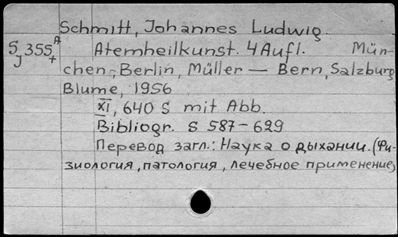 Schmitt, Johannes Ludwig.
S 355 A
J +
Atemheilkunst. 4 Aufl. Mün-
chen-Berlin, Müller — Bern, Salzburg
Blume, 1956
XI, 640 S mit Abb.
Bibliogr. S 587-629
Перевод загл.: Наука о дыхании. (Фи-
зиология, патология, лечебное применение)